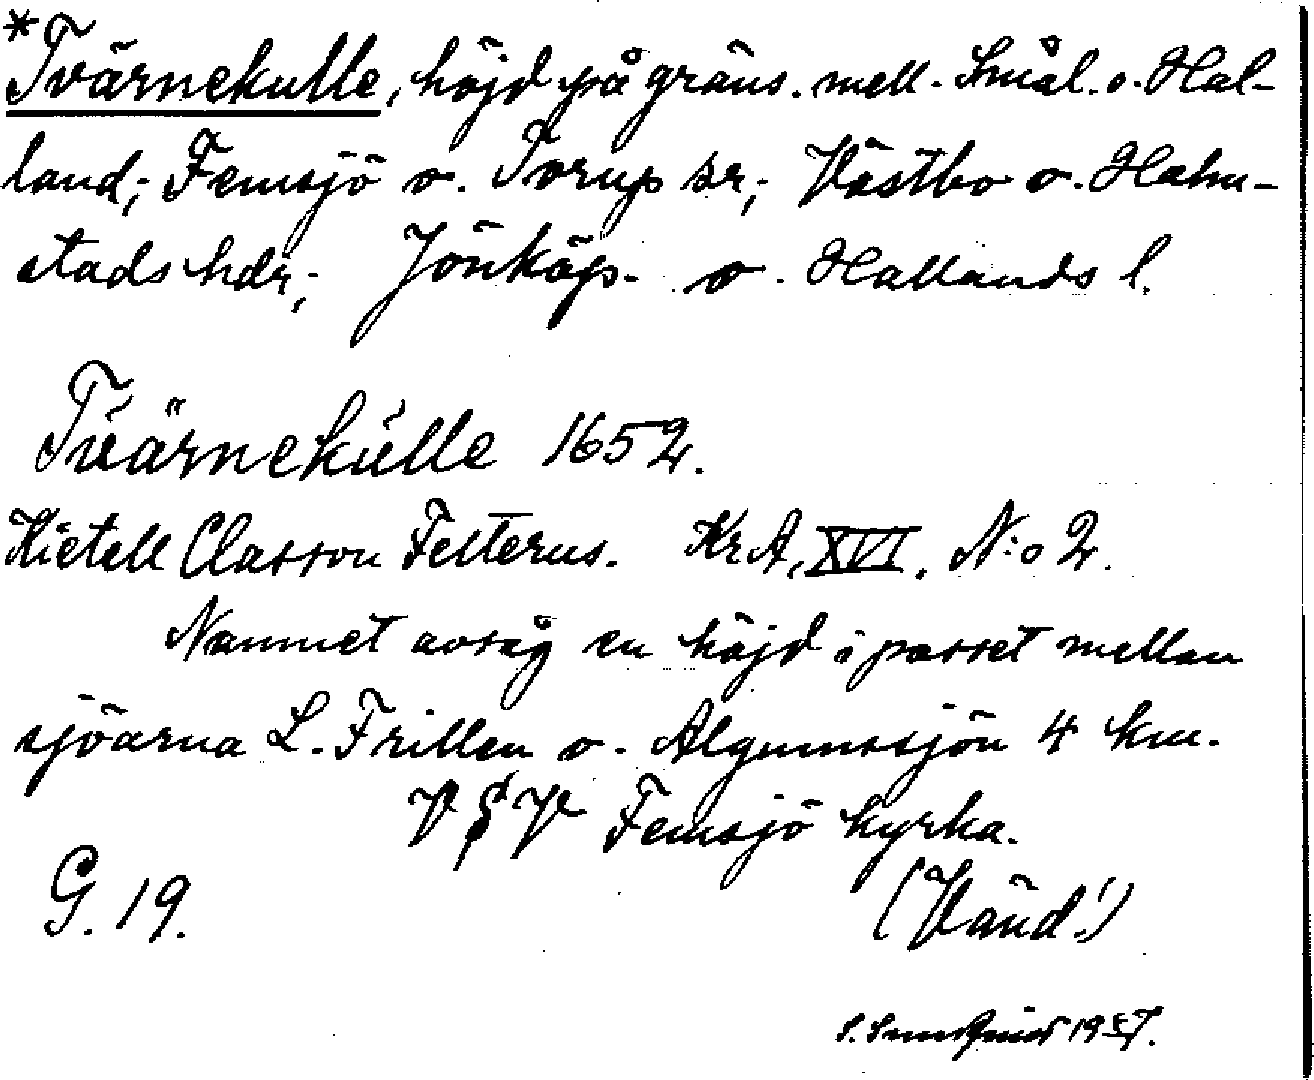 *Tvärnekulle, höjd på gräns. mell. Smål. o. Hal-
land; Femsjö o. Torup sr; Västbo o. Halm-
stads hdr; Jönköp. o. Hallands l.
Tvärnekulle 1652.
Kietell Classon Felterus. KrA, XVI. N:o 2.
Namnet avsåg en höjd i passet mellan
sjöarna L. Frillen o. Algunnssjön 4 km.
V § V Femsjö kyrka.
G. 19.
(Vänd!)
1957.